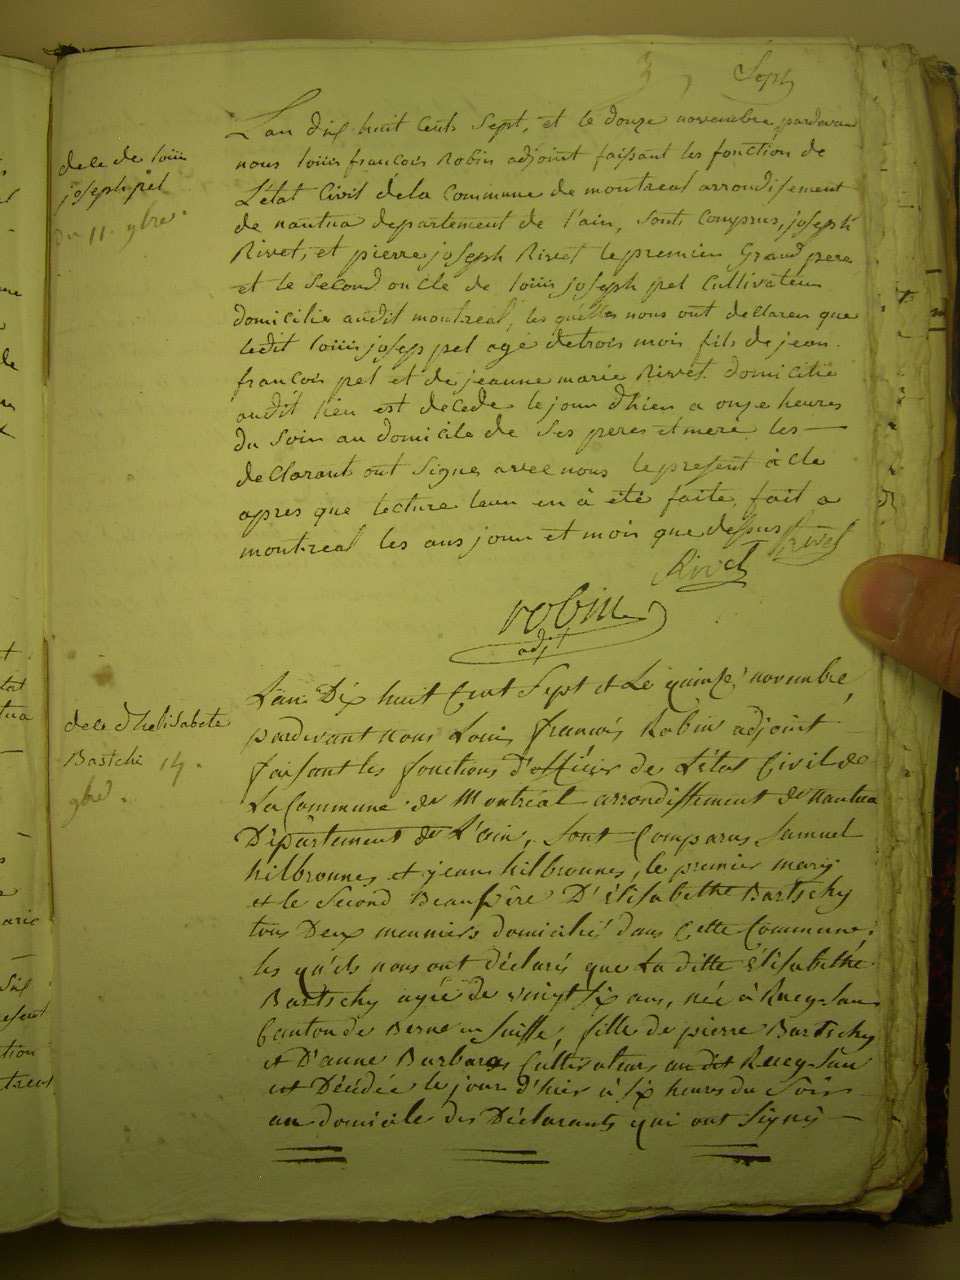 3 Sept
dece de louis
joseph pel
du 11. 9bre.
Lan dix huit cents sept, et le douze novembre pardevan
nous louis francois Robin adjoint faisant les fonction de
L'état Civil dela Commune de montreal arrondisement
de nantua departement de l'ain, sont comprus, joseph
Rivet, et pierre joseph Rivet le premier Grand pere
et le second oncle de louis joseph pel Cultivateur
domicilie audit montreal, les quelles nous ont declarer que
ledit louis joseph pel age detrois mois fils de jean
francois pel et de jeanne marie Rivet domicilie
audit lieu est decede le jour d'hier a onze heures
du soir au domicile de ses peres et mere les
declarant ont signes avec nous le present acte
apres que lecture leur en à été faite, fait a
montreal les ans jour et mois que dessus Rivet
Rivet
robin
adjt
dece d'helisabete
Bastchi 14.
9bre.
L'an Dix huit Cent Sept et Le quinze novembre,
pardevant nous Louis françois Robin adjoint
faisant les fonctions d'officier de L'état Civil de
La Commune de Montréal arrondissement de Nantua
Département de L'ain, sont Comparus Samuel
hilbrounes et jean hilbrounes, le premier mary
et le second Beaufrère D'Elisabethe Bartschy
tous Deux meuniers domiciliés dans Cette Commune;
les qu'els nous ont déclarés que La ditte Elisabethe
Bartschy agée de vingt six ans, née à
Canton de Berne en Suisse, fille de pierre Bartschy
et D'anne Barbara Cultivateurs au dit
est Décédée le jour d'hier à six heures du Soir
au domicile des Déclarants qui ont signés